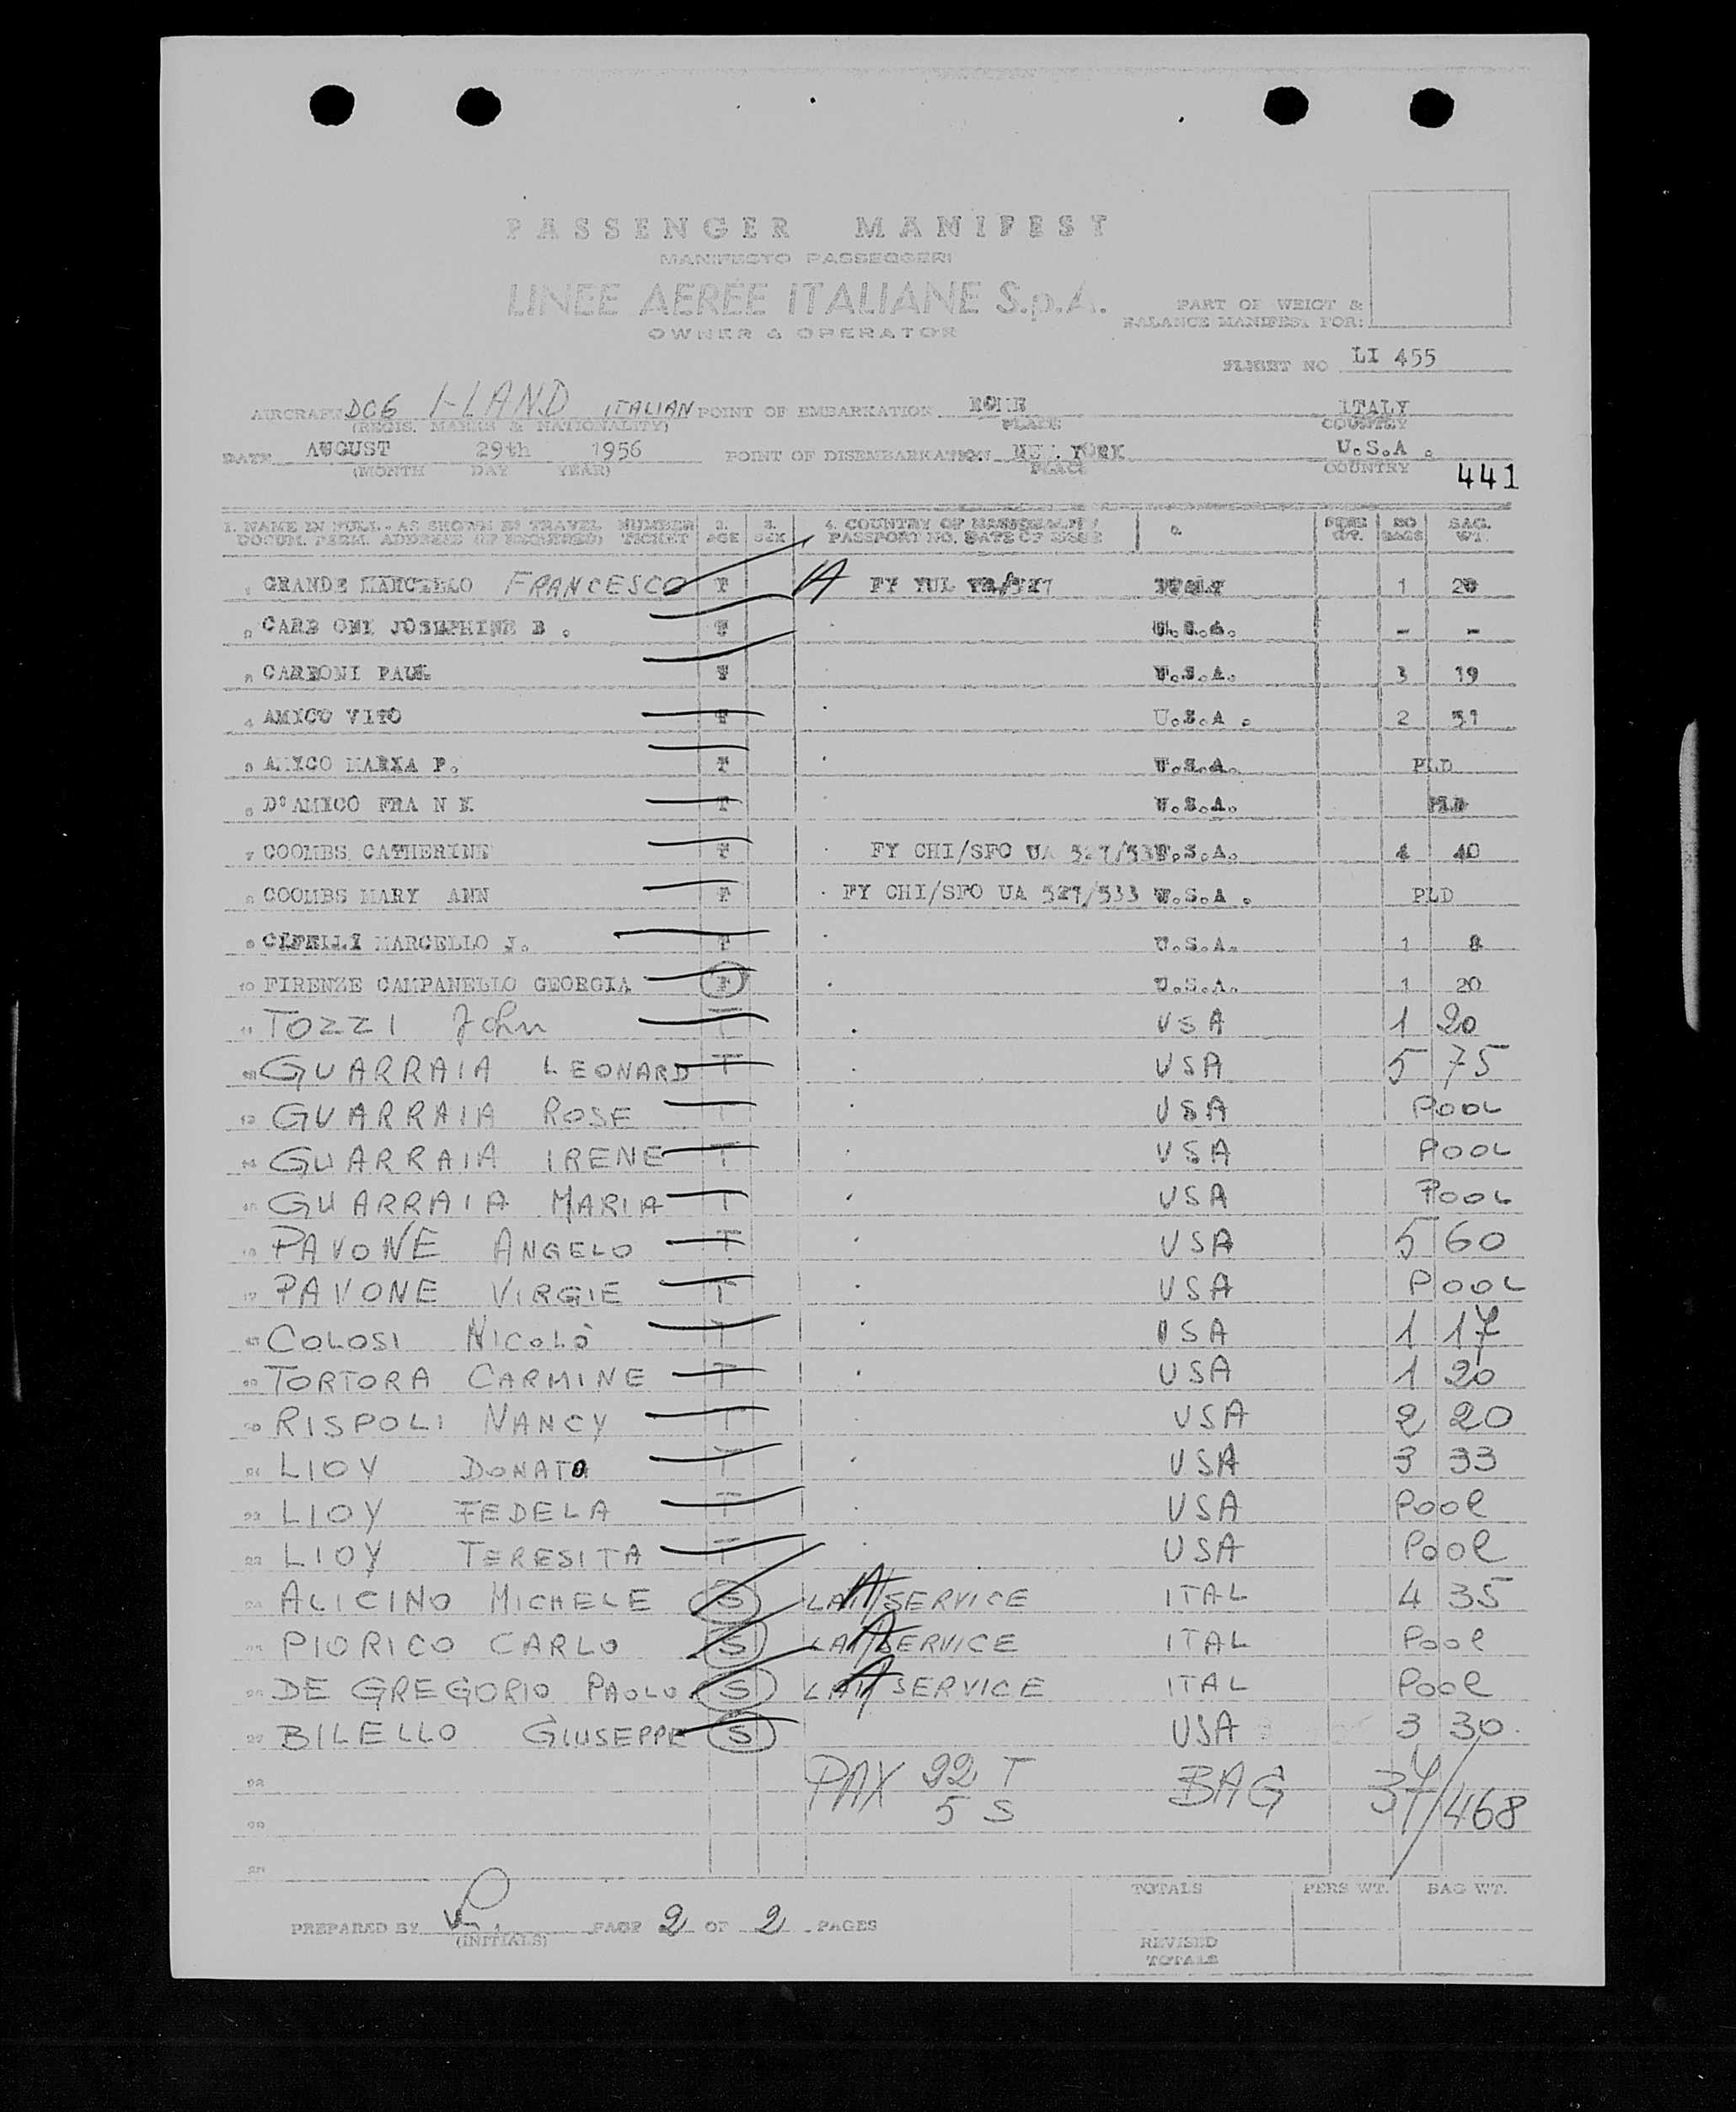 PASSENGER MANIFEST
MANIFESTO PASSEGGERI
LINEE AEREE ITALIANE S.p.A.
OWNER & OPERATOR
PART OF WEIGT &
BALANCE MANIFEST FOR:
FLIGHT NO LI 455
AIRCRAFT DC6 I-LAND ITALIAN POINT OF EMBARKATION ROME ITALY
(REGIS. MARKS & NATIONALITY) PLACE COUNTRY
DATE AUGUST 29th 1956 POINT OF DISEMBARKATION NEW YORK U.S.A.
(MONTH DAY YEAR) PLACE COUNTRY
441
1. NAME IN FULL - AS SHOWN IN TRAVEL NUMBER 2. 3. 4. COUNTRY OF NATIONALITY / PERS NO BAG.
DOCUM. PERM. ADDRESS (IF REQUIRED) TICKET AGE SEX PASSPORT NO. DATE OF ISSUE WT. BAGS WT.
1 GRANDE MARCELLO FRANCESCO T A FY YUL ITALY 1 20
2 CARB ONI JOSEPHINE B. T U.S.A. - -
3 CARBONI PAUL T U.S.A. 3 19
4 AMICO VITO T U.S.A. 2 51
5 AMICO MARIA P. T U.S.A. PLD
6 D'AMICO FRA N K T U.S.A. PLD
7 COOMBS CATHERINE T FY CHI/SFO UA 527/533 U.S.A. 4 40
8 COOMBS MARY ANN T FY CHI/SFO UA 527/533 U.S.A. PLD
9 CIFELLI MARCELLO J. T U.S.A. 1 8
10 FIRENZE CAMPANELLO GEORGIA T U.S.A. 1 20
11 TOZZI John T USA 1 20
12 GUARRAIA LEONARD T USA 5 75
13 GUARRAIA ROSE T USA POOL
14 GUARRAIA IRENE T USA POOL
15 GUARRAIA MARIA T USA POOL
16 PAVONE ANGELO T USA 5 60
17 PAVONE VIRGIE T USA POOL
18 COLOSI NICOLÒ T USA 1 17
19 TORTORA CARMINE T USA 1 20
20 RISPOLI NANCY T USA 2 20
21 LIOY DONATO T USA 3 33
22 LIOY FEDELA T USA Pool
23 LIOY TERESITA T USA Pool
24 ALICINO MICHELE S LAI/SERVICE A ITAL 4 35
25 PIORICO CARLO S LAI/SERVICE A ITAL Pool
26 DE GREGORIO PAOLO S LAI/SERVICE A ITAL Pool
27 BILELLO GIUSEPPE S USA 3 30
28 PAX 22 T BAG 37/468
29 5 S
30
TOTALS PERS WT. BAG WT.
PREPARED BY PAGE 2 OF 2 PAGES
(INITIALS)
REVISED
TOTALS